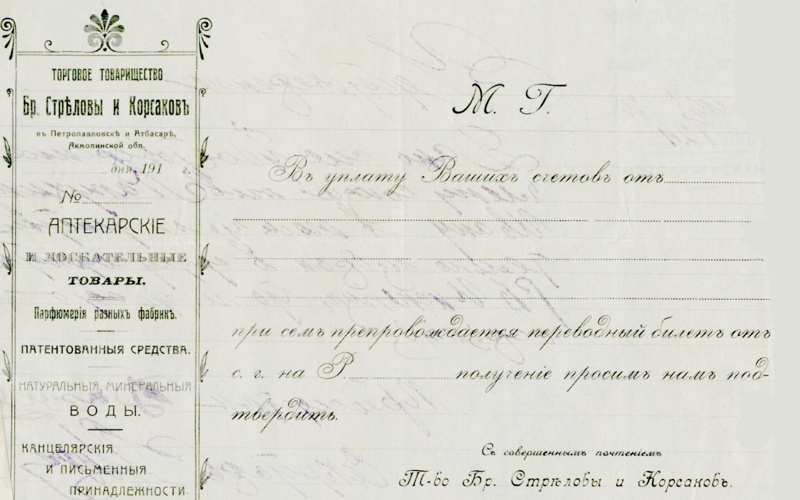 ТОРГОВОЕ ТОВАРИЩЕСТВО
Бр. Стрѣловы и Корсаковъ
въ Петропавловскѣ и Атбасарѣ,
Акмолинской обл.
дня, 191 г.
№
АПТЕКАРСКІЕ
И МОСКАТЕЛЬНЫЕ
ТОВАРЫ.
Парфюмерія разныхъ фабрикъ.
ПАТЕНТОВАННЫЯ СРЕДСТВА.
НАТУРАЛЬНЫЯ, МИНЕРАЛЬНЫЯ
ВОДЫ.
КАНЦЕЛЯРСКІЯ
И ПИСЬМЕННЫЯ
ПРИНАДЛЕЖНОСТИ.
М. Г.
Въ уплату Вашихъ счетовъ отъ
при семъ препровождается переводный билетъ отъ
с. г. на Р. получение просимъ намъ под-
твердить.
Съ совершеннымъ почтеніемъ
Т-во Бр. Стрѣловы и Корсаковъ.